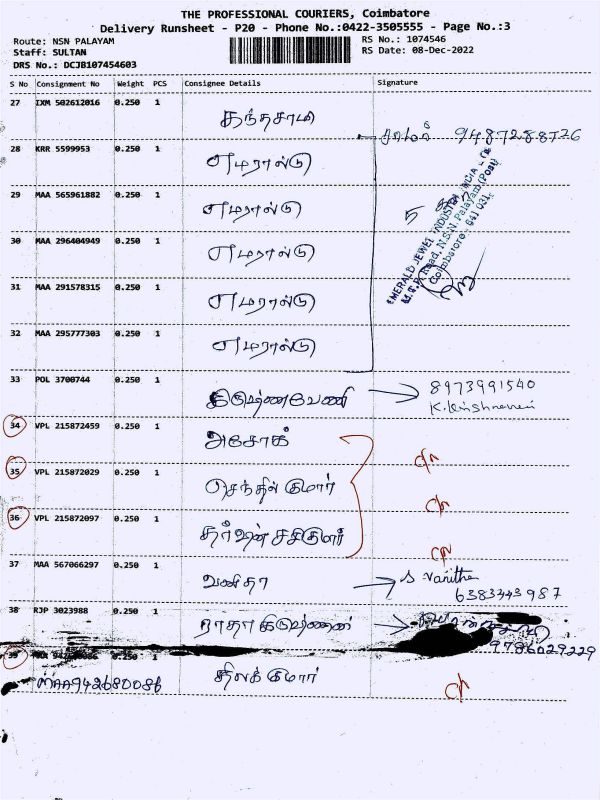 THE PROFESSIONAL COURIERS, Coimbatore
Delivery Runsheet - P20 - Phone No.:0422-3505555 - Page No.:3
Route: NSN PALAYAM
RS No.: 1074546
Staff: SULTAN
RS Date: 08-Dec-2022
DRS No.: DCJB107454603
S No Consignment No Weight PCS Consignee Details Signature
27 IXM 502612016 0.250 1 கந்தசாமி
9487288726
28 KRR 5599953 0.250 1 எமரால்டு
29 MAA 565961882 0.250 1 எமரால்டு
EMERALD JEWEL INDUSTRY INDIA
M.T.P. Road, N.S.N. Palayam (Post)
Coimbatore - 641 031.
30 MAA 296404949 0.250 1 எமரால்டு
31 MAA 291578315 0.250 1 எமரால்டு
32 MAA 295777303 0.250 1 எமரால்டு
33 POL 3700744 0.250 1 கிருஷ்ணவேணி 8973991540
34 VPL 215872459 0.250 1 அசோக்
35 VPL 215872029 0.250 1 செந்தில் குமார்
36 VPL 215872097 0.250 1 தர்ஷன் சசிகுமார்
37 MAA 567066297 0.250 1 வனிதா S Vanitha
6383343987
38 RJP 3023988 0.250 1 ராதா கிருஷ்ணன்
9786029229
39 MAA942680086 திலக் குமார்